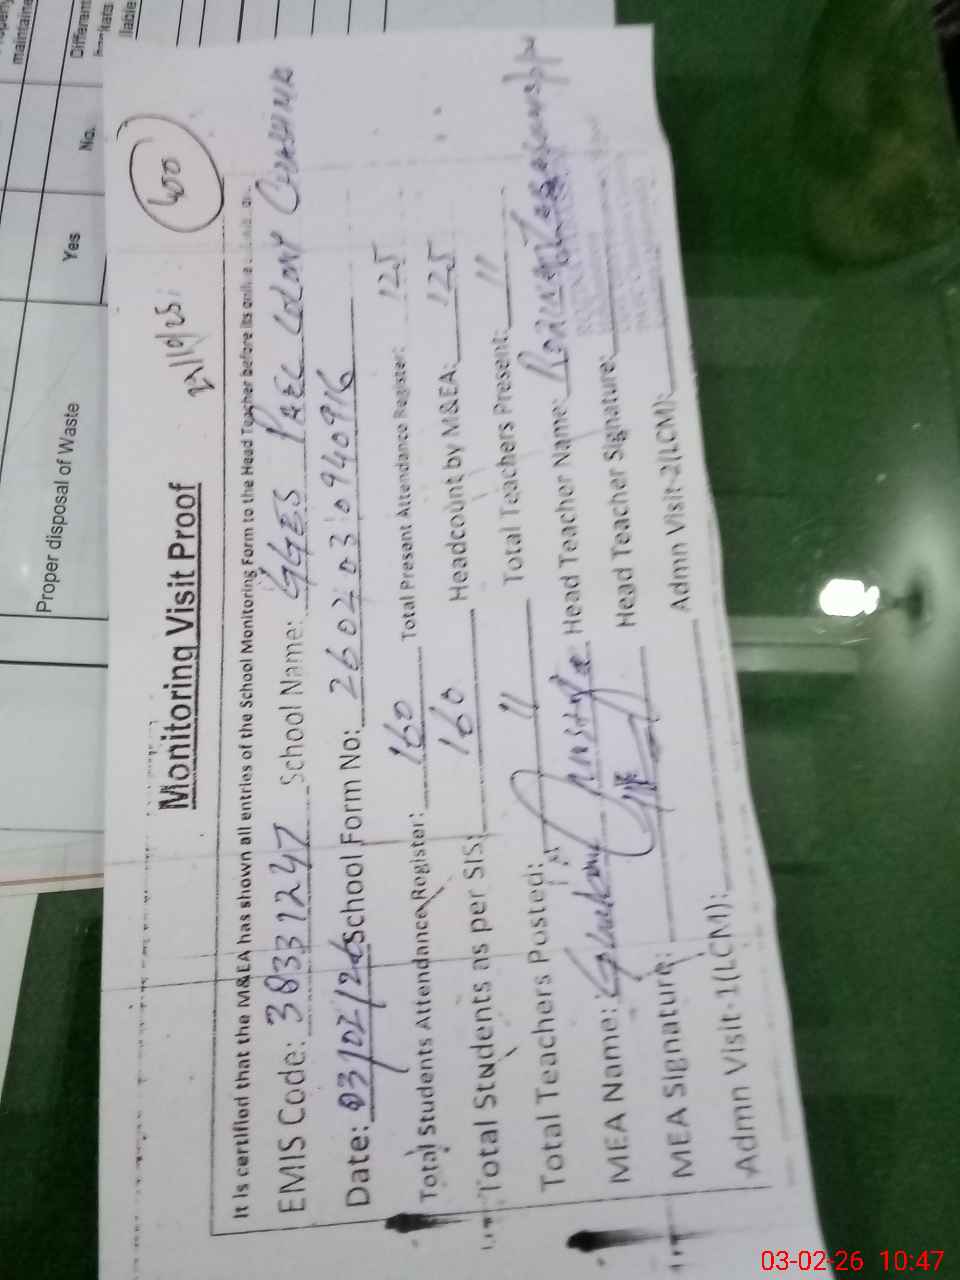 maintaine
Different
liable
Yes
No.
Proper disposal of Waste
400
Monitoring Visit Proof
It is certified that the M&EA has shown all entries of the School Monitoring Form to the Head Teacher before its
EMIS Code: 38337247 School Name: GGES PAEC COLONY CHASHMA
Date: 03/02/26 School Form No: 2602030940916
Total Students Attendance Register: 160 Total Present Attendance Register: 125
Total Students as per SIS: 160 Headcount by M&EA: 125
Total Teachers Posted: 11 Total Teachers Present: 11
MEA Name: Ghulam Head Teacher Name:
MEA Signature: Head Teacher Signature:
Admn Visit-1(LCM): Admn Visit-2(LCM):
03-02-26 10:47